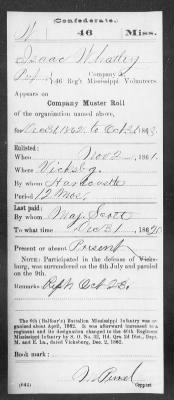 (Confederate.)
W 46 Miss.
Isaac Whatley
Pvt, Company
46 Reg't Mississippi Volunteers.
Appears on
Company Muster Roll
of the organization named above,
for Dec 31, 1862, to Oct 31, 1863.
Enlisted:
When Nov 2, 1861.
Where Vicksburg
By whom Hardcastle
Period 12 Mos.
Last paid:
By whom Maj. Scott
To what time Dec 31, 1862.
Present or absent Present
NOTE: Participated in the defense of Vicksburg, was surrendered on the 4th July and paroled
on the 9th.
Remarks: Rept. Oct 23.
The 6th (Balfour's) Battalion Mississippi Infantry was
organized about April, 1862. It was afterward increased to a
regiment and its designation changed to the 46th Regiment
Mississippi Infantry by S. O. No. III, Hd. Qrs 2d Dist., Dept.
M. and E. La., dated Vicksburg, Dec. 2, 1862.
Book mark:
(642)
Copyist